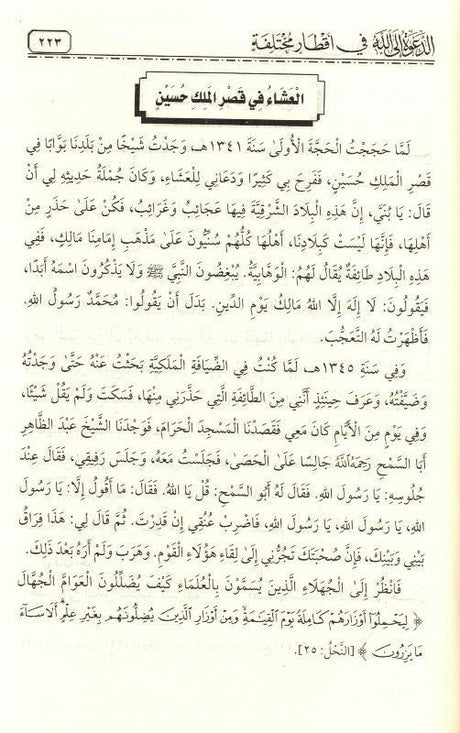 الدعوة إلى الله في أقطار مختلفة
٢٢٣
العَشَاءُ فِي قَصْرِ المَلِكِ حُسَيْنٍ
لَمَّا حَجَجْتُ الْحَجَّةَ الْأُولَى سَنَةَ ١٣٤١ هـ، وَجَدْتُ شَيْخًا مِنْ بَلَدِنَا بَوَّابًا فِي
قَصْرِ الْمَلِكِ حُسَيْنٍ، فَفَرِحَ بِي كَثِيرًا وَدَعَانِي لِلْعَشَاءِ، وَكَانَ جُمْلَةُ حَدِيثِهِ لِي أَنْ
قَالَ: يَا بُنَيَّ، إِنَّ هَذِهِ الْبِلَادَ الشَّرْقِيَّةَ فِيهَا عَجَائِبُ وَغَرَائِبُ، فَكُنْ عَلَى حَذَرٍ مِنْ
أَهْلِهَا، فَإِنَّهَا لَيْسَتْ كَبِلَادِنَا، أَهْلُهَا كُلُّهُمْ سُنِّيُّونَ عَلَى مَذْهَبِ إِمَامِنَا مَالِكٍ، فَفِي
هَذِهِ الْبِلَادِ طَائِفَةٌ يُقَالُ لَهُمْ: الْوَهَّابِيَّةُ. يُبْغِضُونَ النَّبِيَّ ﷺ وَلَا يَذْكُرُونَ اسْمَهُ أَبَدًا،
فَيَقُولُونَ: لَا إِلَهَ إِلَّا اللهُ مَالِكُ يَوْمِ الدِّينِ. بَدَلَ أَنْ يَقُولُوا: مُحَمَّدٌ رَسُولُ اللهِ.
فَأَظْهَرْتُ لَهُ التَّعَجُّبَ.
وَفِي سَنَةِ ١٣٤٥ هـ، لَمَّا كُنْتُ فِي الضِّيَافَةِ الْمَلَكِيَّةِ بَحَثْتُ عَنْهُ حَتَّى وَجَدْتُهُ
وَضَيَّفْتُهُ، وَعَرَفَ حِينَئِذٍ أَنَّنِي مِنَ الطَّائِفَةِ الَّتِي حَذَّرَنِي مِنْهَا، فَسَكَتَ وَلَمْ يَقُلْ شَيْئًا،
وَفِي يَوْمٍ مِنَ الْأَيَّامِ كَانَ مَعِي فَقَصَدْنَا الْمَسْجِدَ الْحَرَامَ، فَوَجَدْنَا الشَّيْخَ عَبْدَ الظَّاهِرِ
أَبَا السَّمْحِ رَحِمَهُ اللَّهُ جَالِسًا عَلَى الْحَصَى، فَجَلَسْتُ مَعَهُ، وَجَلَسَ رَفِيقِي، فَقَالَ عِنْدَ
جُلُوسِهِ: يَا رَسُولَ اللهِ. فَقَالَ لَهُ أَبُو السَّمْحِ: قُلْ يَا اللهُ. فَقَالَ: مَا أَقُولُ إِلَّا: يَا رَسُولَ
اللهِ، يَا رَسُولَ اللهِ، يَا رَسُولَ اللهِ، فَاضْرِبْ عُنُقِي إِنْ قَدِرْتَ. ثُمَّ قَالَ لِي: هَذَا فِرَاقُ
بَيْنِي وَبَيْنِكَ، فَإِنَّ صُحْبَتَكَ تَجُرُّنِي إِلَى لِقَاءِ هَؤُلَاءِ الْقَوْمِ. وَهَرَبَ وَلَمْ أَرَهُ بَعْدَ ذَلِكَ.
فَانْظُرْ إِلَى الْجُهَلَاءِ الَّذِينَ يُسَمَّوْنَ بِالْعُلَمَاءِ كَيْفَ يُضَلِّلُونَ الْعَوَامَّ الْجُهَّالَ
﴿ لِيَحْمِلُوٓا۟ أَوْزَارَهُمْ كَامِلَةً يَوْمَ ٱلْقِيَـٰمَةِ وَمِنْ أَوْزَارِ ٱلَّذِينَ يُضِلُّونَهُم بِغَيْرِ عِلْمٍ أَلَا سَآءَ
مَا يَزِرُونَ ﴾ [النَّحْل: ٢٥].